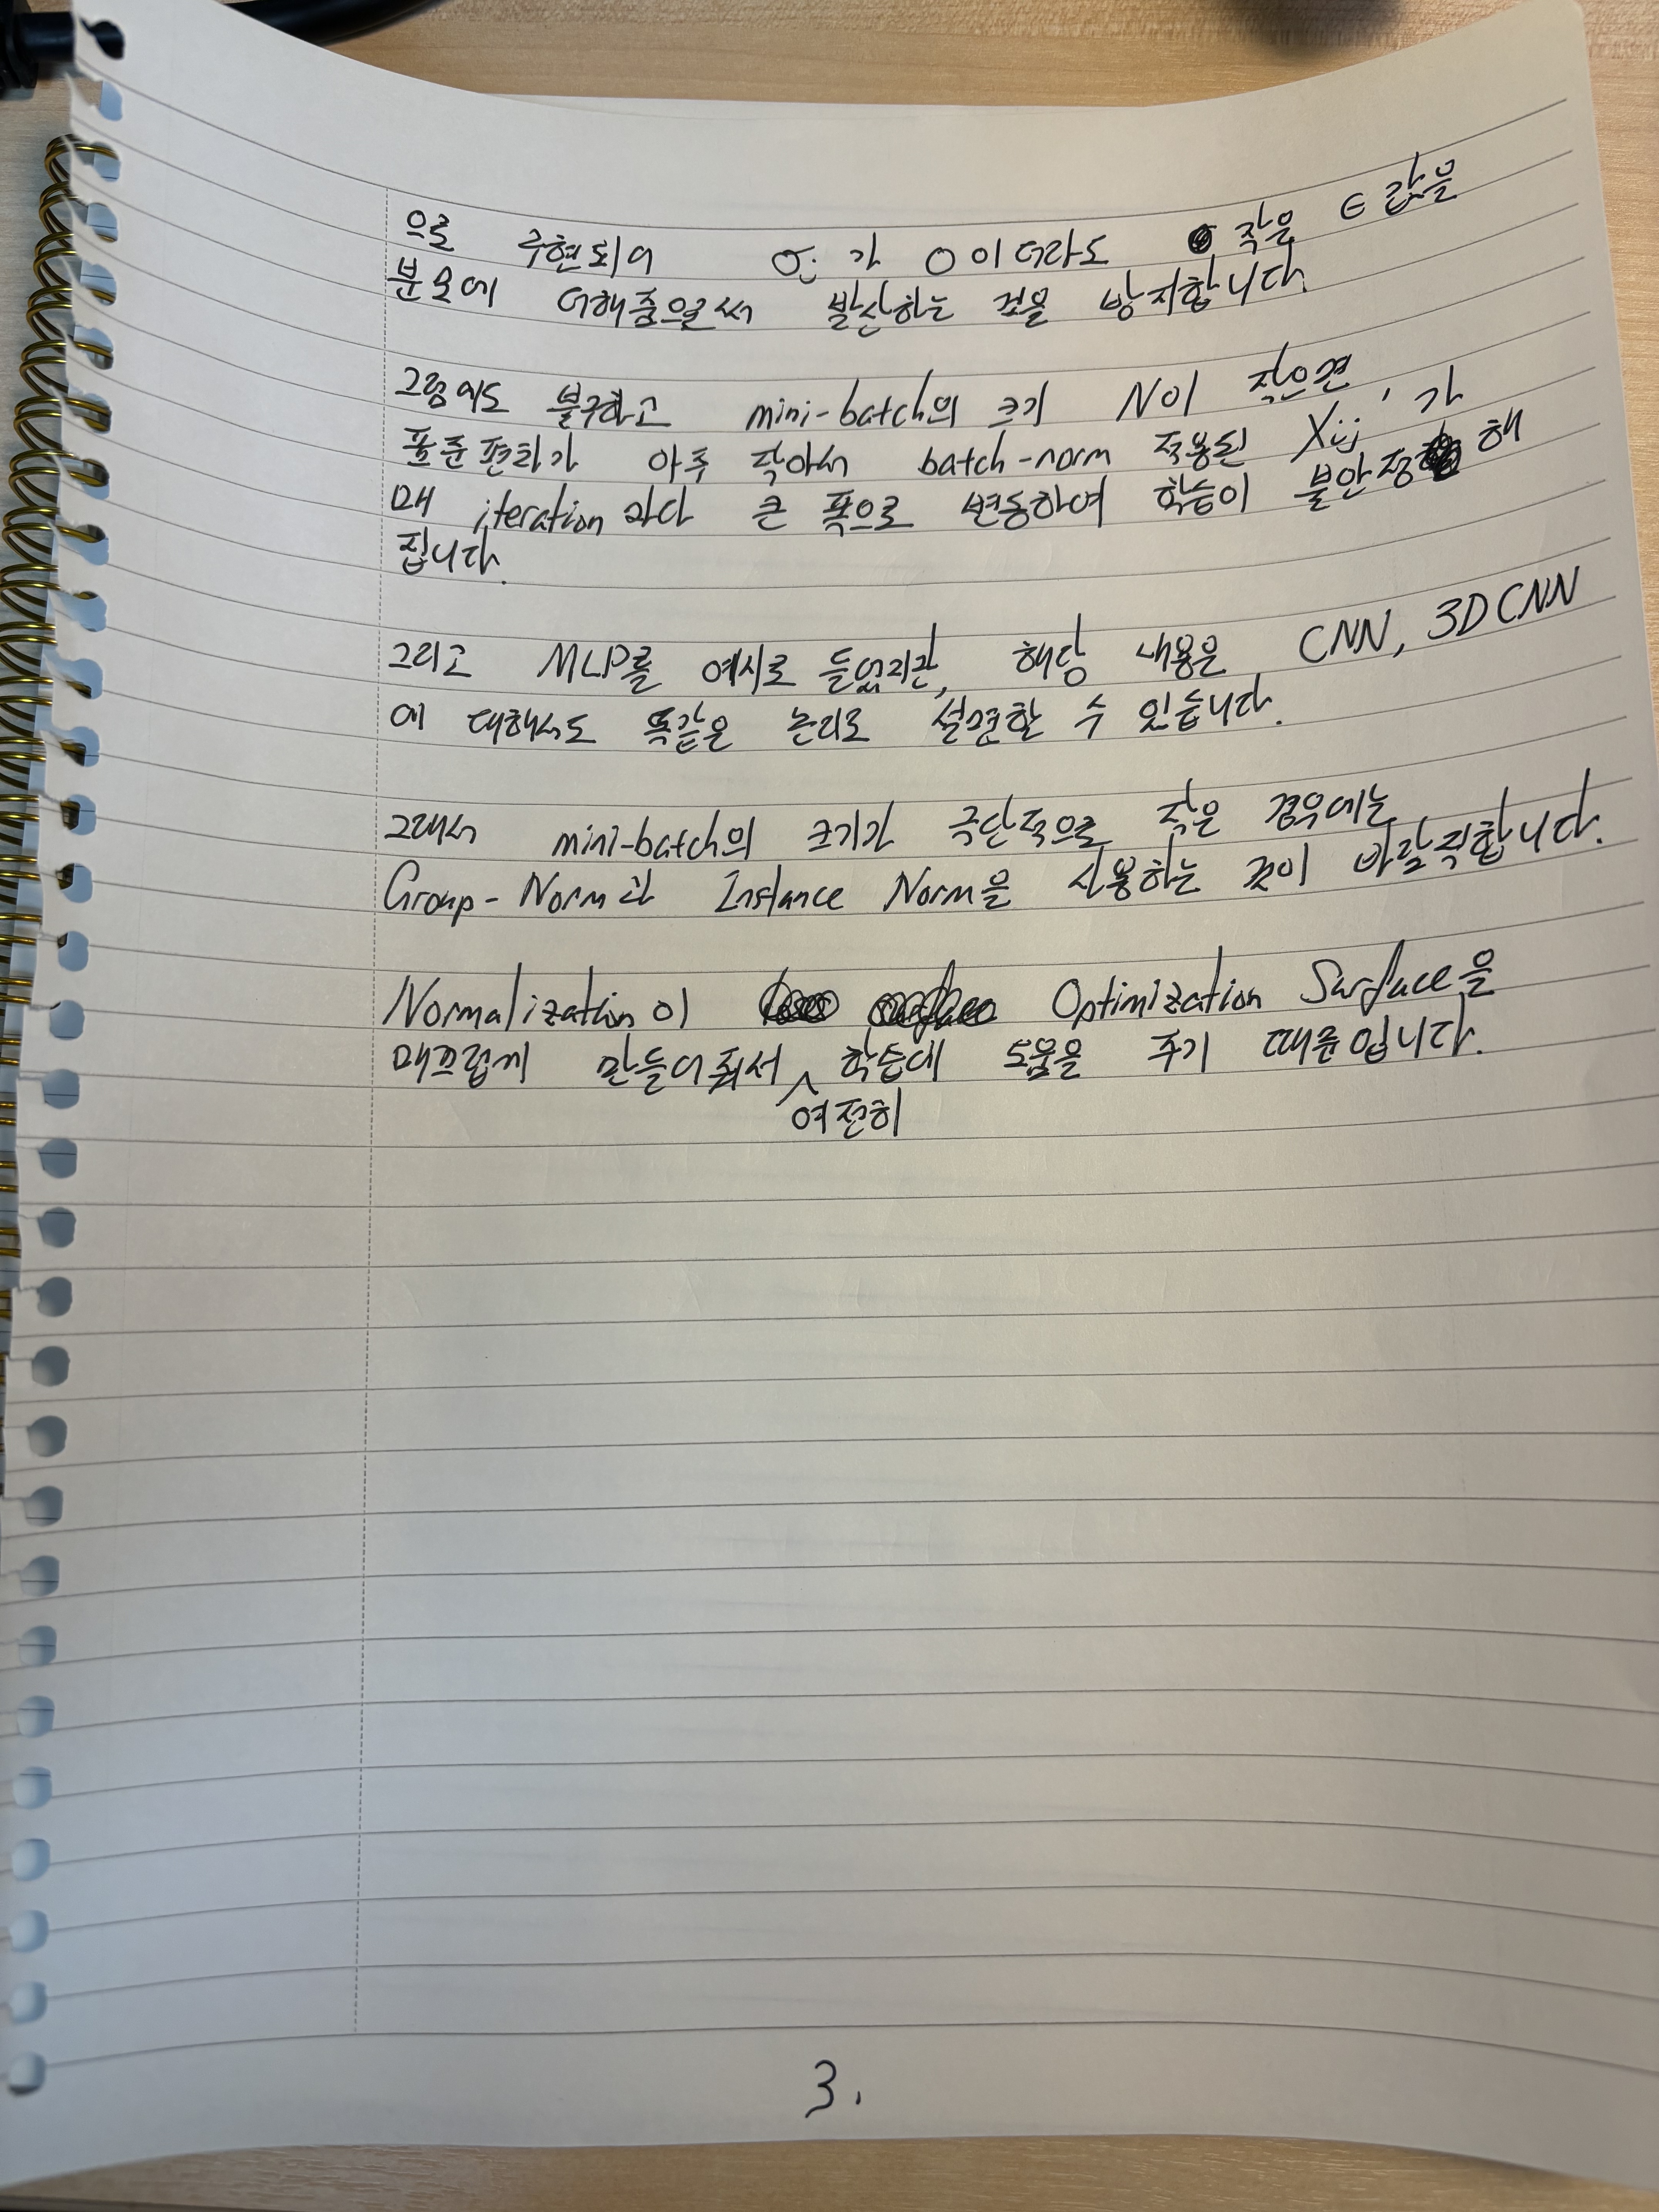 으로 구현되어 σⱼ가 0이더라도 작은 ϵ 값을
분모에 더해줌으로써 발산하는 것을 방지합니다.
그럼에도 불구하고 mini-batch의 크기 N이 작으면
표준편차가 아주 작아서 batch-norm 적용된 Xij'가
매 iteration마다 큰 폭으로 변동하여 학습이 불안정해
집니다.
그리고 MLP를 예시로 들었지만, 해당 내용은 CNN, 3D CNN
에 대해서도 똑같은 논리로 설명할 수 있습니다.
그래서 mini-batch의 크기가 극단적으로 작은 경우에는
Group-Norm과 Instance Norm을 사용하는 것이 바람직합니다.
Normalization이 Optimization Surface을
매끄럽게 만들어줘서 ^ 학습에 도움을 주기 때문입니다.
여전히
3.